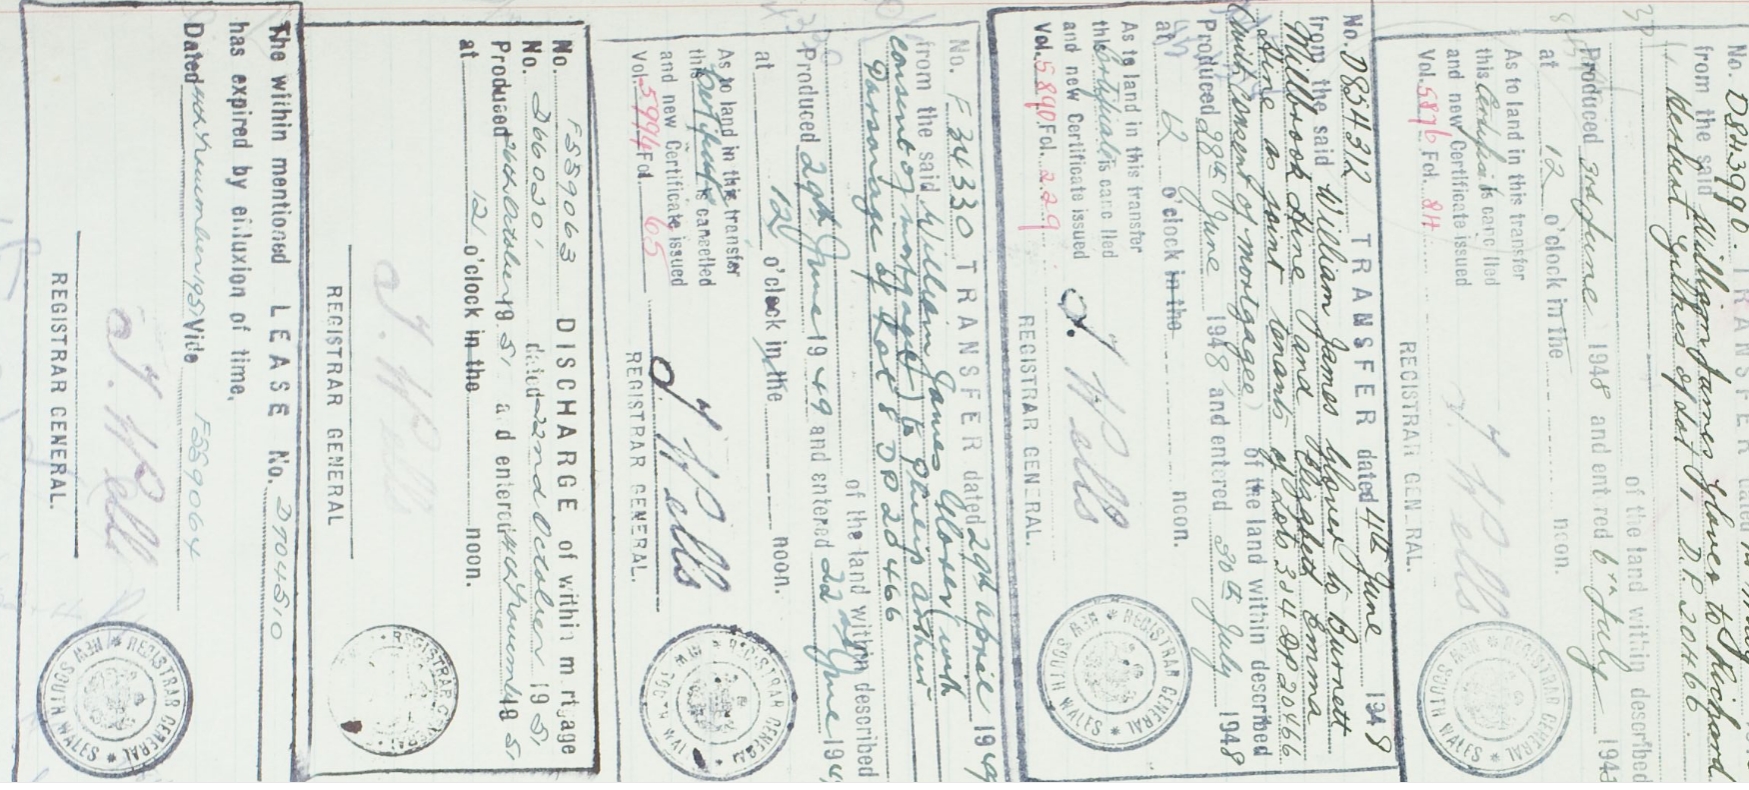 No. D843990. TRANSFER dated
from the said William James Glover to
Herbert of Lot 1, D.P. 20466
of the land within described
Produced 3rd June 1948 and entered 6th July 194
at 12 o'clock in the noon.
As to land in this transfer
this Certificate is cancelled
and new Certificate issued
Vol. 5876 Fol. 211
REGISTRAR GENERAL.
REGISTRAR GENERAL NEW SOUTH WALES
No. D854312 TRANSFER dated 4th June 1948
from the said William James Glover to Burnett
Millbrook Hine and Emma
Hine as joint tenants of Lots 3 & 4 DP 20466
(with consent of mortgagee) of the land within described
Produced 28th June 1948 and entered 30th July 1948
at 12 o'clock in the noon.
As to land in this transfer
this Certificate is cancelled
and new Certificate issued
Vol. 5890 Fol. 229
J Wells
REGISTRAR GENERAL.
REGISTRAR GENERAL NEW SOUTH WALES
No. F34330 TRANSFER dated 29th April 1949
from the said William James Glover (with
consent of mortgagee) to Arthur
Parsonage of Lot 8 DP 20466
of the land within described
Produced 29th June 1949 and entered 22nd June 194
at 12 o'clock in the noon.
As to land in this transfer
this Certificate is cancelled
and new Certificate issued
Vol. 5994 Fol. 65
J Wells
REGISTRAR GENERAL.
REGISTRAR GENERAL NEW SOUTH WAL
No. F559063 DISCHARGE of within mortgage
No. D66020 dated 22nd October 1951
Produced 26th October 1951 and entered 1951
at 12 o'clock in the noon.
J Wells
REGISTRAR GENERAL
REGISTRAR GENERAL
The within mentioned LEASE No. D704510
has expired by effluxion of time.
Dated 1951 Vide F559064
J Wells
REGISTRAR GENERAL.
REGISTRAR GENERAL NEW SOUTH WALES